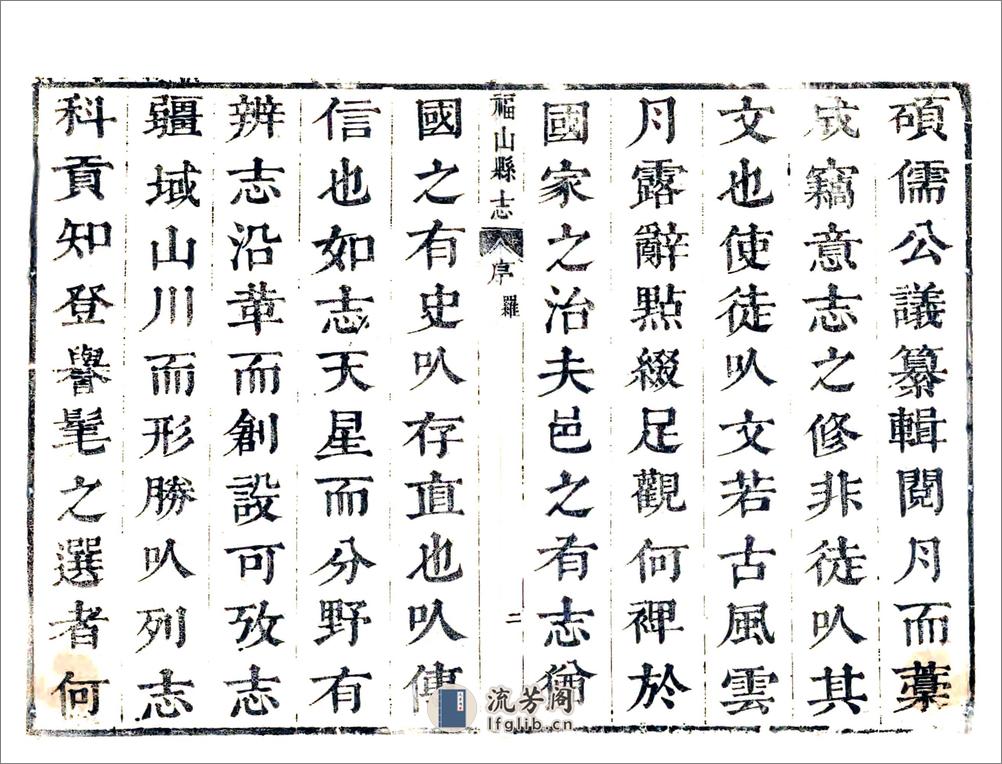 碩儒公議纂輯閱月而藁
成竊意志之修非徒㕥其
文也使徒㕥文若古風雲
月露辭點綴足觀何裨於
國家之治夫邑之有志猶
福山縣志
序
羅
二
國之有史㕥存直也㕥傳
信也如志天星而分野有
辨志沿革而創設可攷志
疆域山川而形勝㕥列志
科貢知登譽髦之選者何
流芳阁
lfglib.cn